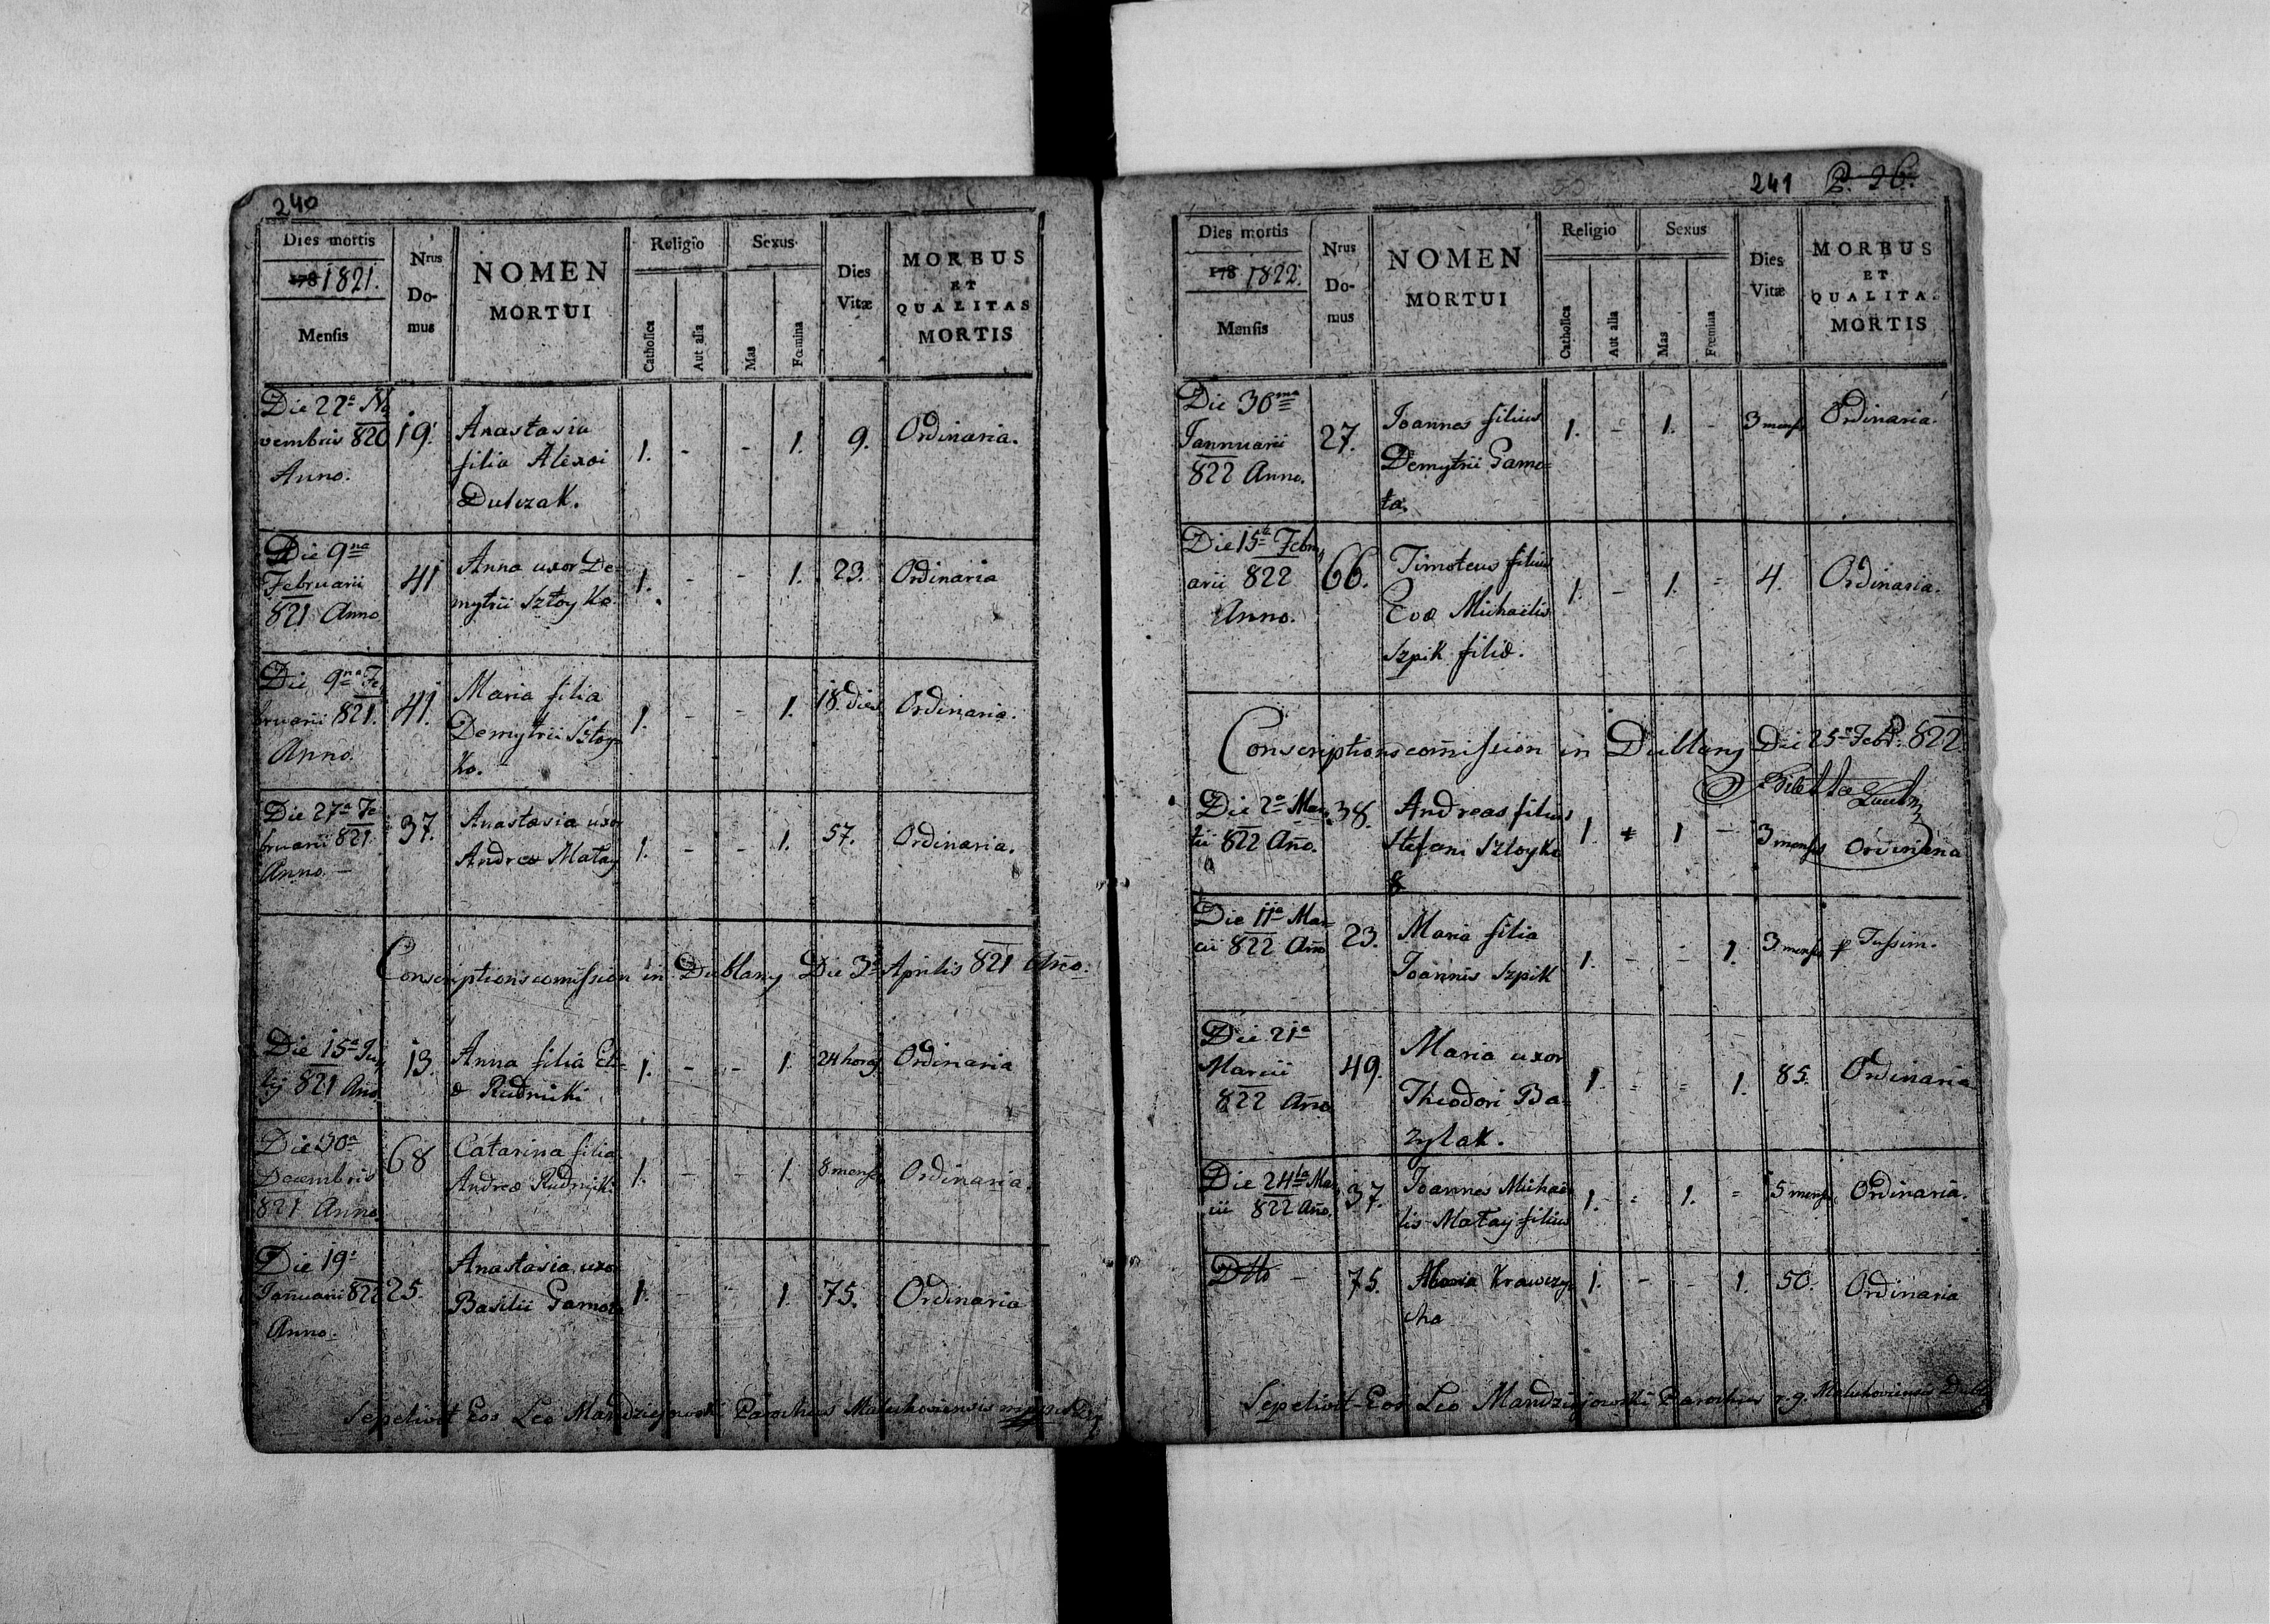 240
Dies mortis
178 1821.
Mensis
Nrus
Do-
mus
NOMEN
MORTUI
Religio
Catholica
Aut alia
Sexus
Mas
Fœmina
Dies
Vitæ
MORBUS
ET
QUALITAS
MORTIS
Die 22a No
vembris 820
Anno.
19.
Anastasia
filia Alexii
Dulczak.
1. - - 1. 9. Ordinaria.
Die 9na
Februarii
821 Anno
41
Anna uxor De-
mytrii Sztoyko
1. - - 1. 23. Ordinaria
Die 9na Fe
bruarii 821.
Anno.
41.
Maria filia
Demytrii Sztoy
ko.
1. - - 1. 18. dies Ordinaria.
Die 27a Fe
bruarii 821
Anno. -
37.
Anastasia uxor
Andreæ Matay
1. - - 1. 57. Ordinaria.
Conscriptionscomission in Dublany Die 3a Aprilis 821 Ano.
Die 15a Ju
lij 821 Ano
13.
Anna filia
Rudnicki
1. - - 1. 24 horas Ordinaria
Die 30a
Decembris
821 Anno
68
Catarina filia
Andreæ Rudnicki
1. - - 1. 8 mens. Ordinaria.
Die 19a
Januarii 822
Anno.
25.
Anastasia uxo
Basilii Gamota
1. - - 1. 75. Ordinaria
Sepelivit Eos Leo Mandziejowski Parochus Maluhoviensis
241 P. 26.
Dies mortis
178 1822.
Mensis
Nrus
Do-
mus
NOMEN
MORTUI
Religio
Catholica
Aut alia
Sexus
Mas
Fœmina
Dies
Vitæ
MORBUS
ET
QUALITAS
MORTIS
Die 30ma
Jannuarii
822 Anno.
27.
Joannes filius
Demytrii Gamo-
ta.
1. - 1. - 3 mens. Ordinaria.
Die 15ta Febru
arii 822
Anno.
66.
Timoteus filius
Evæ Michaelis
Szpik filiæ.
1. - 1. - 4. Ordinaria.
Conscriptionscomission in Dublany Die 25a Febr. 822
Die 2a Mar
tii 822 Ano.
38.
Andreas filius
Stefani Sztoyko
1. - 1 - 3 mensis Ordinaria
Die 11a Mar-
cii 822 Ano
23.
Maria filia
Joannis Szpik
1. - - 1. 3 mensis Tussim.
Die 21a
Marcii
822 Ano
49.
Maria uxor
Theodori Ba-
zylak.
1. - - 1. 85. Ordinaria
Die 24ta Mar
cii 822 Ano.
37.
Joannes Michae
lis Matay filius
1. - 1. - 5 mens. Ordinaria.
Dtto -
75.
Maria Krawczy
cha
1. - - 1. 50. Ordinaria
Sepelivit Eos Leo Mandziejowski Parochus r. g. Maluhoviensis